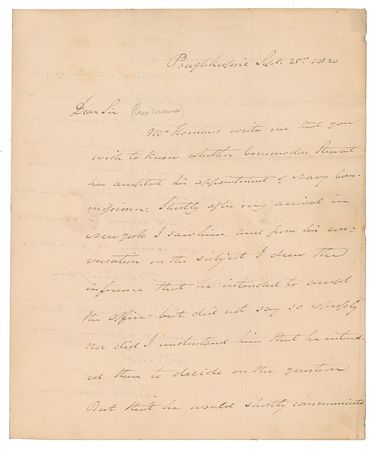 Poughkeepsie Sept. 25th 1820
Dear Sir
Mr Homans writes me that you
wish to know whether Commodore Stewart
has accepted his appointment of Navy Com-
missioner. Shortly after my arrival in
New York I saw him, and from his con-
versation on the subject I drew the
inference that he intended to accept
the office but did not say so expressly
nor did I understand him that he intend-
ed then to decide on the question
But that he would shortly communicate